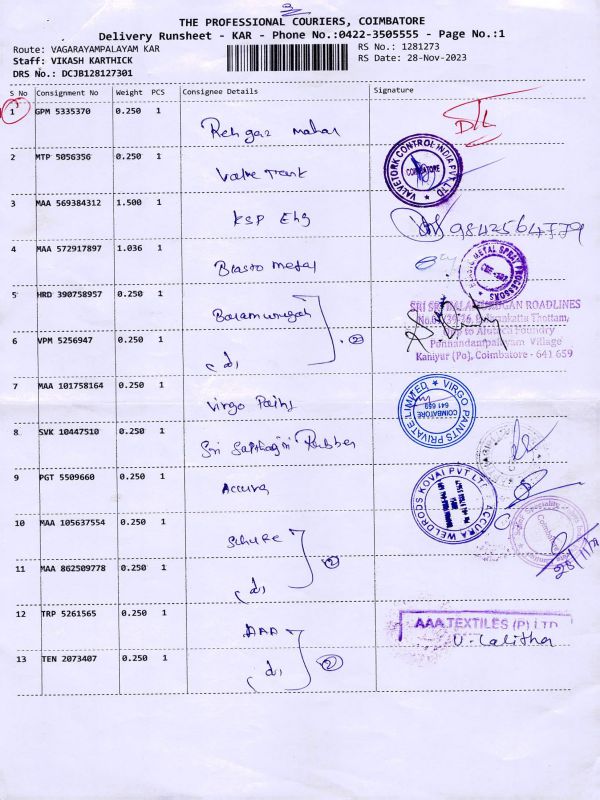 3
THE PROFESSIONAL COURIERS, COIMBATORE
Delivery Runsheet - KAR - Phone No.:0422-3505555 - Page No.:1
Route: VAGARAYAMPALAYAM KAR
RS No.: 1281273
Staff: VIKASH KARTHICK
RS Date: 28-Nov-2023
DRS No.: DCJB128127301
S No Consignment No Weight PCS Consignee Details Signature
1 GPM 5335370 0.250 1
2 MTP 5056356 0.250 1
VALVETORK CONTROL INDIA PVT. LTD
COIMBATORE
3 MAA 569384312 1.500 1 KSP Eng 9842564779
4 MAA 572917897 1.036 1 Blasto metal
METAL SPRAY PROCESSORS
5 HRD 390758957 0.250 1 Balamurugan
ROADLINES
Thottam,
Foundry
Ponnandampalayam Village
Kaniyur (Po), Coimbatore - 641 659
6 VPM 5256947 0.250 1 (d) 2
7 MAA 101758164 0.250 1 Virgo Paints
VIRGO PAINTS PRIVATE LIMITED
COIMBATORE
641 659
8 SVK 10447510 0.250 1 Sri Sapthagiri Rubber
9 PGT 5509660 0.250 1 Accura
ACCURA WELDRODS KOVAI PVT LTD
10 MAA 105637554 0.250 1
Coimbatore
28/11/
11 MAA 862509778 0.250 1 (d) 2
12 TRP 5261565 0.250 1 AAA
AAA TEXTILES (P) LTD
V. Lalitha
13 TEN 2073407 0.250 1 (d) 2